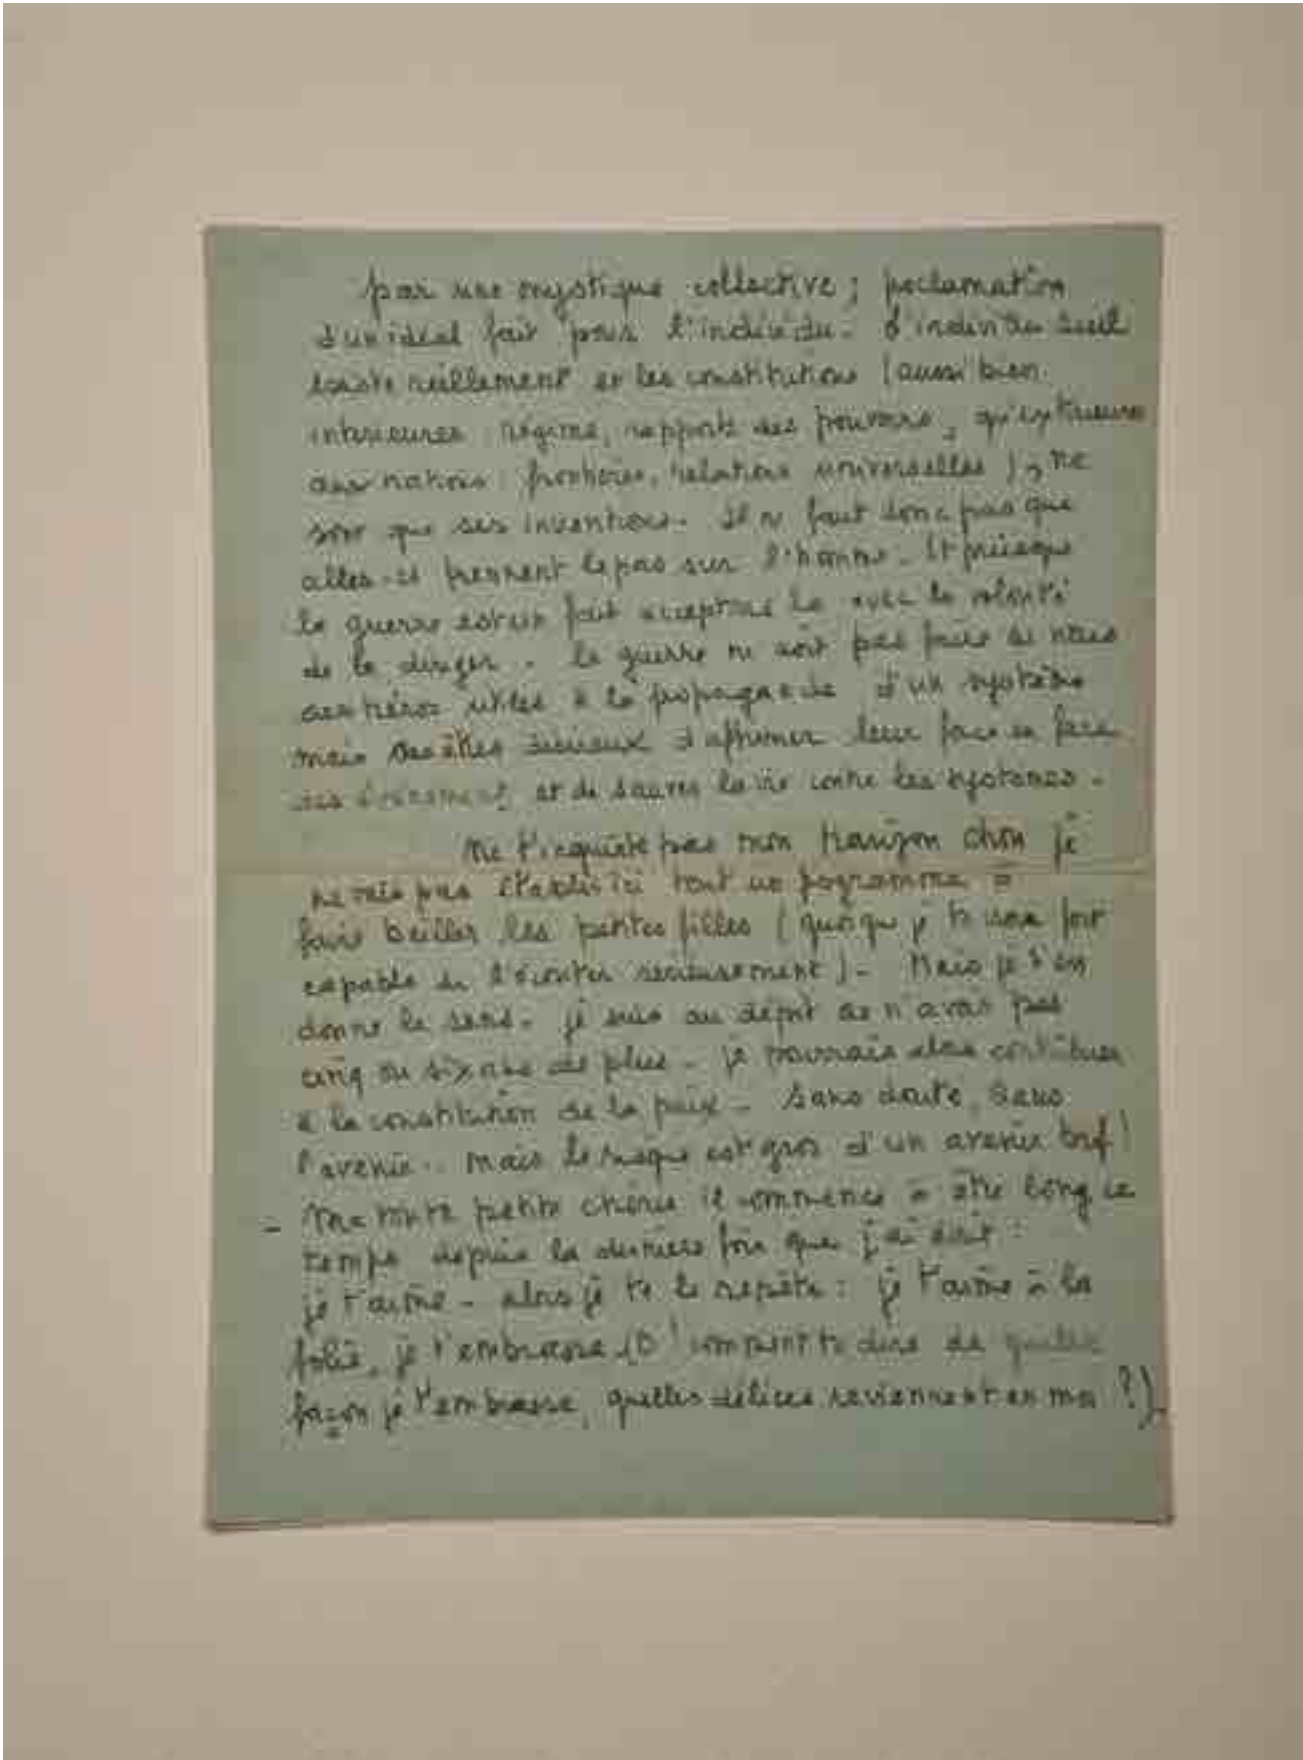 par une mystique collective ; poclamation
d'un idéal fait pour l'individu. L'individu seul
existe réellement et les constitutions (aussi bien
intérieures : régime, rapports des pouvoirs, qu'extérieures
aux nations : frontières, relations universelles), ne
sont que ses inventions. Il ne faut donc pas que
elles prennent le pas sur l'homme. Et puisque
la guerre est un fait acceptons la avec la volonté
de la diriger. la guerre ne doit pas faire de nous
des héros utiles à la propagande d'un système
mais des êtres d'affirmer leur face en face
des événement et de sauver la vie contre les systèmes.
Ne t'inquiète pas mon chou je
ne vais pas établir ici tout un pogramme à
faire bailler les petites filles (quoique je te fort
capable de l'écouter sérieusement). Mais je t'en
donne le sens. je suis au dépit de n'avoir pas
cinq ou six ans de plus. je pourrais alors contribuer
à la constitution de la paix. Sans doute, dans
l'avenir.. mais le risque est gros d'un avenir bref!
- Ma toute petite chérie il commence à être long ce
temps depuis la dernière fois que j'ai écrit :
je t'aime. alors je te le repète : je t'aime à la
folie, je t'embrasse (O! comment te dire de quelle
façon je t'embrasse, quelles délices reviennent en moi ?).